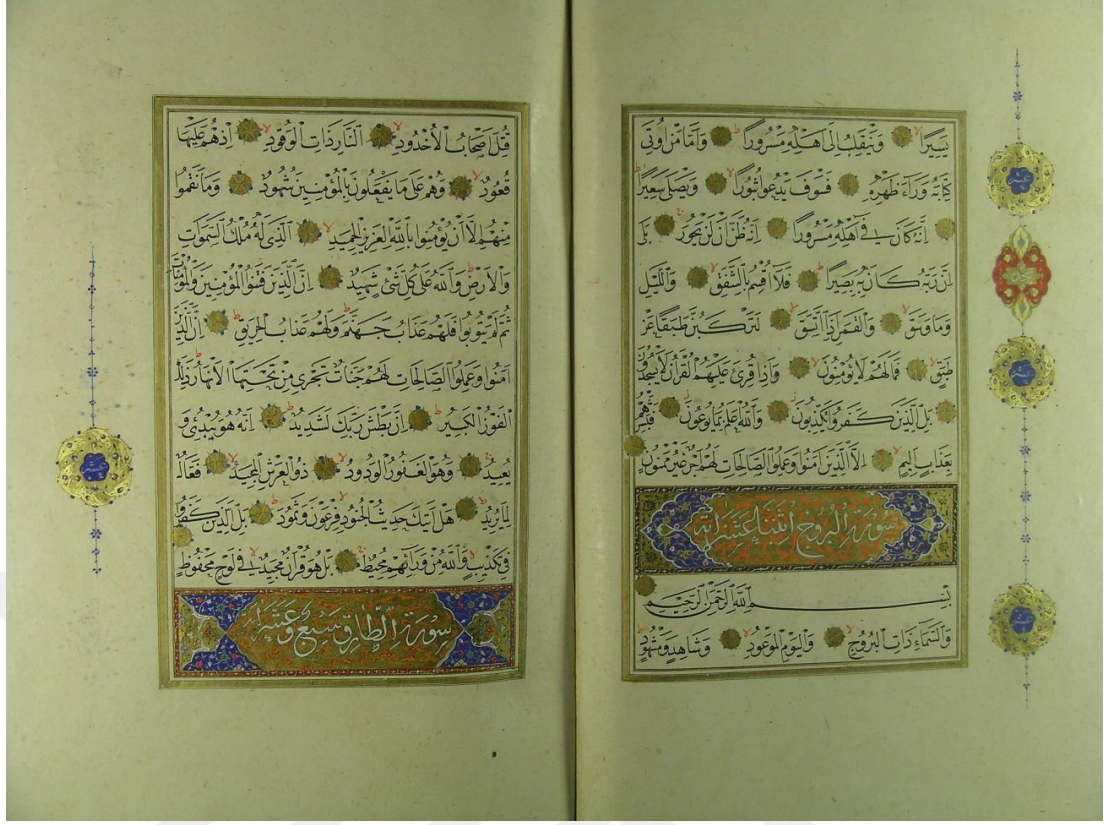 يَسِيرًا وَيَنْقَلِبُ اِلٰى اَهْلِهِ مَسْرُورًا وَاَمَّا مَنْ اُوتِيَ
كِتَابَهُ وَرَاءَ ظَهْرِهِ فَسَوْفَ يَدْعُوا ثُبُورًا وَيَصْلٰى سَعِيرًا
اِنَّهُ كَانَ فِي اَهْلِهِ مَسْرُورًا اِنَّهُ ظَنَّ اَنْ لَنْ يَحُورَ بَلٰى
اِنَّ رَبَّهُ كَانَ بِهِ بَصِيرًا فَلَا اُقْسِمُ بِالشَّفَقِ وَالَّيْلِ
وَمَا وَسَقَ وَالْقَمَرِ اِذَا اتَّسَقَ لَتَرْكَبُنَّ طَبَقًا عَنْ
طَبَقٍ فَمَا لَهُمْ لَا يُؤْمِنُونَ وَاِذَا قُرِئَ عَلَيْهِمُ الْقُرْاٰنُ لَا يَسْجُدُونَ
بَلِ الَّذِينَ كَفَرُوا يُكَذِّبُونَ وَاللّٰهُ اَعْلَمُ بِمَا يُوعُونَ فَبَشِّرْهُمْ
بِعَذَابٍ اَلِيمٍ اِلَّا الَّذِينَ اٰمَنُوا وَعَمِلُوا الصَّالِحَاتِ لَهُمْ اَجْرٌ غَيْرُ مَمْنُونٍ
سورة البروج اثنتا عشر اية
بِسْمِ اللّٰهِ الرَّحْمٰنِ الرَّحِيمِ
وَالسَّمَاءِ ذَاتِ الْبُرُوجِ وَالْيَوْمِ الْمَوْعُودِ وَشَاهِدٍ وَمَشْهُودٍ
عشر
عشر
عشر
قُتِلَ اَصْحَابُ الْاُخْدُودِ اَلنَّارِ ذَاتِ الْوَقُودِ اِذْ هُمْ عَلَيْهَا
قُعُودٌ وَهُمْ عَلٰى مَا يَفْعَلُونَ بِالْمُؤْمِنِينَ شُهُودٌ وَمَا نَقَمُوا
مِنْهُمْ اِلَّا اَنْ يُؤْمِنُوا بِاللّٰهِ الْعَزِيزِ الْحَمِيدِ اَلَّذِي لَهُ مُلْكُ السَّمٰوَاتِ
وَالْاَرْضِ وَاللّٰهُ عَلٰى كُلِّ شَيْءٍ شَهِيدٌ اِنَّ الَّذِينَ فَتَنُوا الْمُؤْمِنِينَ وَالْمُؤْمِنَاتِ
ثُمَّ لَمْ يَتُوبُوا فَلَهُمْ عَذَابُ جَهَنَّمَ وَلَهُمْ عَذَابُ الْحَرِيقِ اِنَّ الَّذِينَ
اٰمَنُوا وَعَمِلُوا الصَّالِحَاتِ لَهُمْ جَنَّاتٌ تَجْرِي مِنْ تَحْتِهَا الْاَنْهَارُ ذٰلِكَ
الْفَوْزُ الْكَبِيرُ اِنَّ بَطْشَ رَبِّكَ لَشَدِيدٌ اِنَّهُ هُوَ يُبْدِئُ وَ
يُعِيدُ وَهُوَ الْغَفُورُ الْوَدُودُ ذُو الْعَرْشِ الْمَجِيدُ فَعَّالٌ
لِمَا يُرِيدُ هَلْ اَتٰيكَ حَدِيثُ الْجُنُودِ فِرْعَوْنَ وَثَمُودَ بَلِ الَّذِينَ كَفَرُوا
فِي تَكْذِيبٍ وَاللّٰهُ مِنْ وَرَائِهِمْ مُحِيطٌ بَلْ هُوَ قُرْاٰنٌ مَجِيدٌ فِي لَوْحٍ مَحْفُوظٍ
سورة الطارق سبع وعشر
عشر